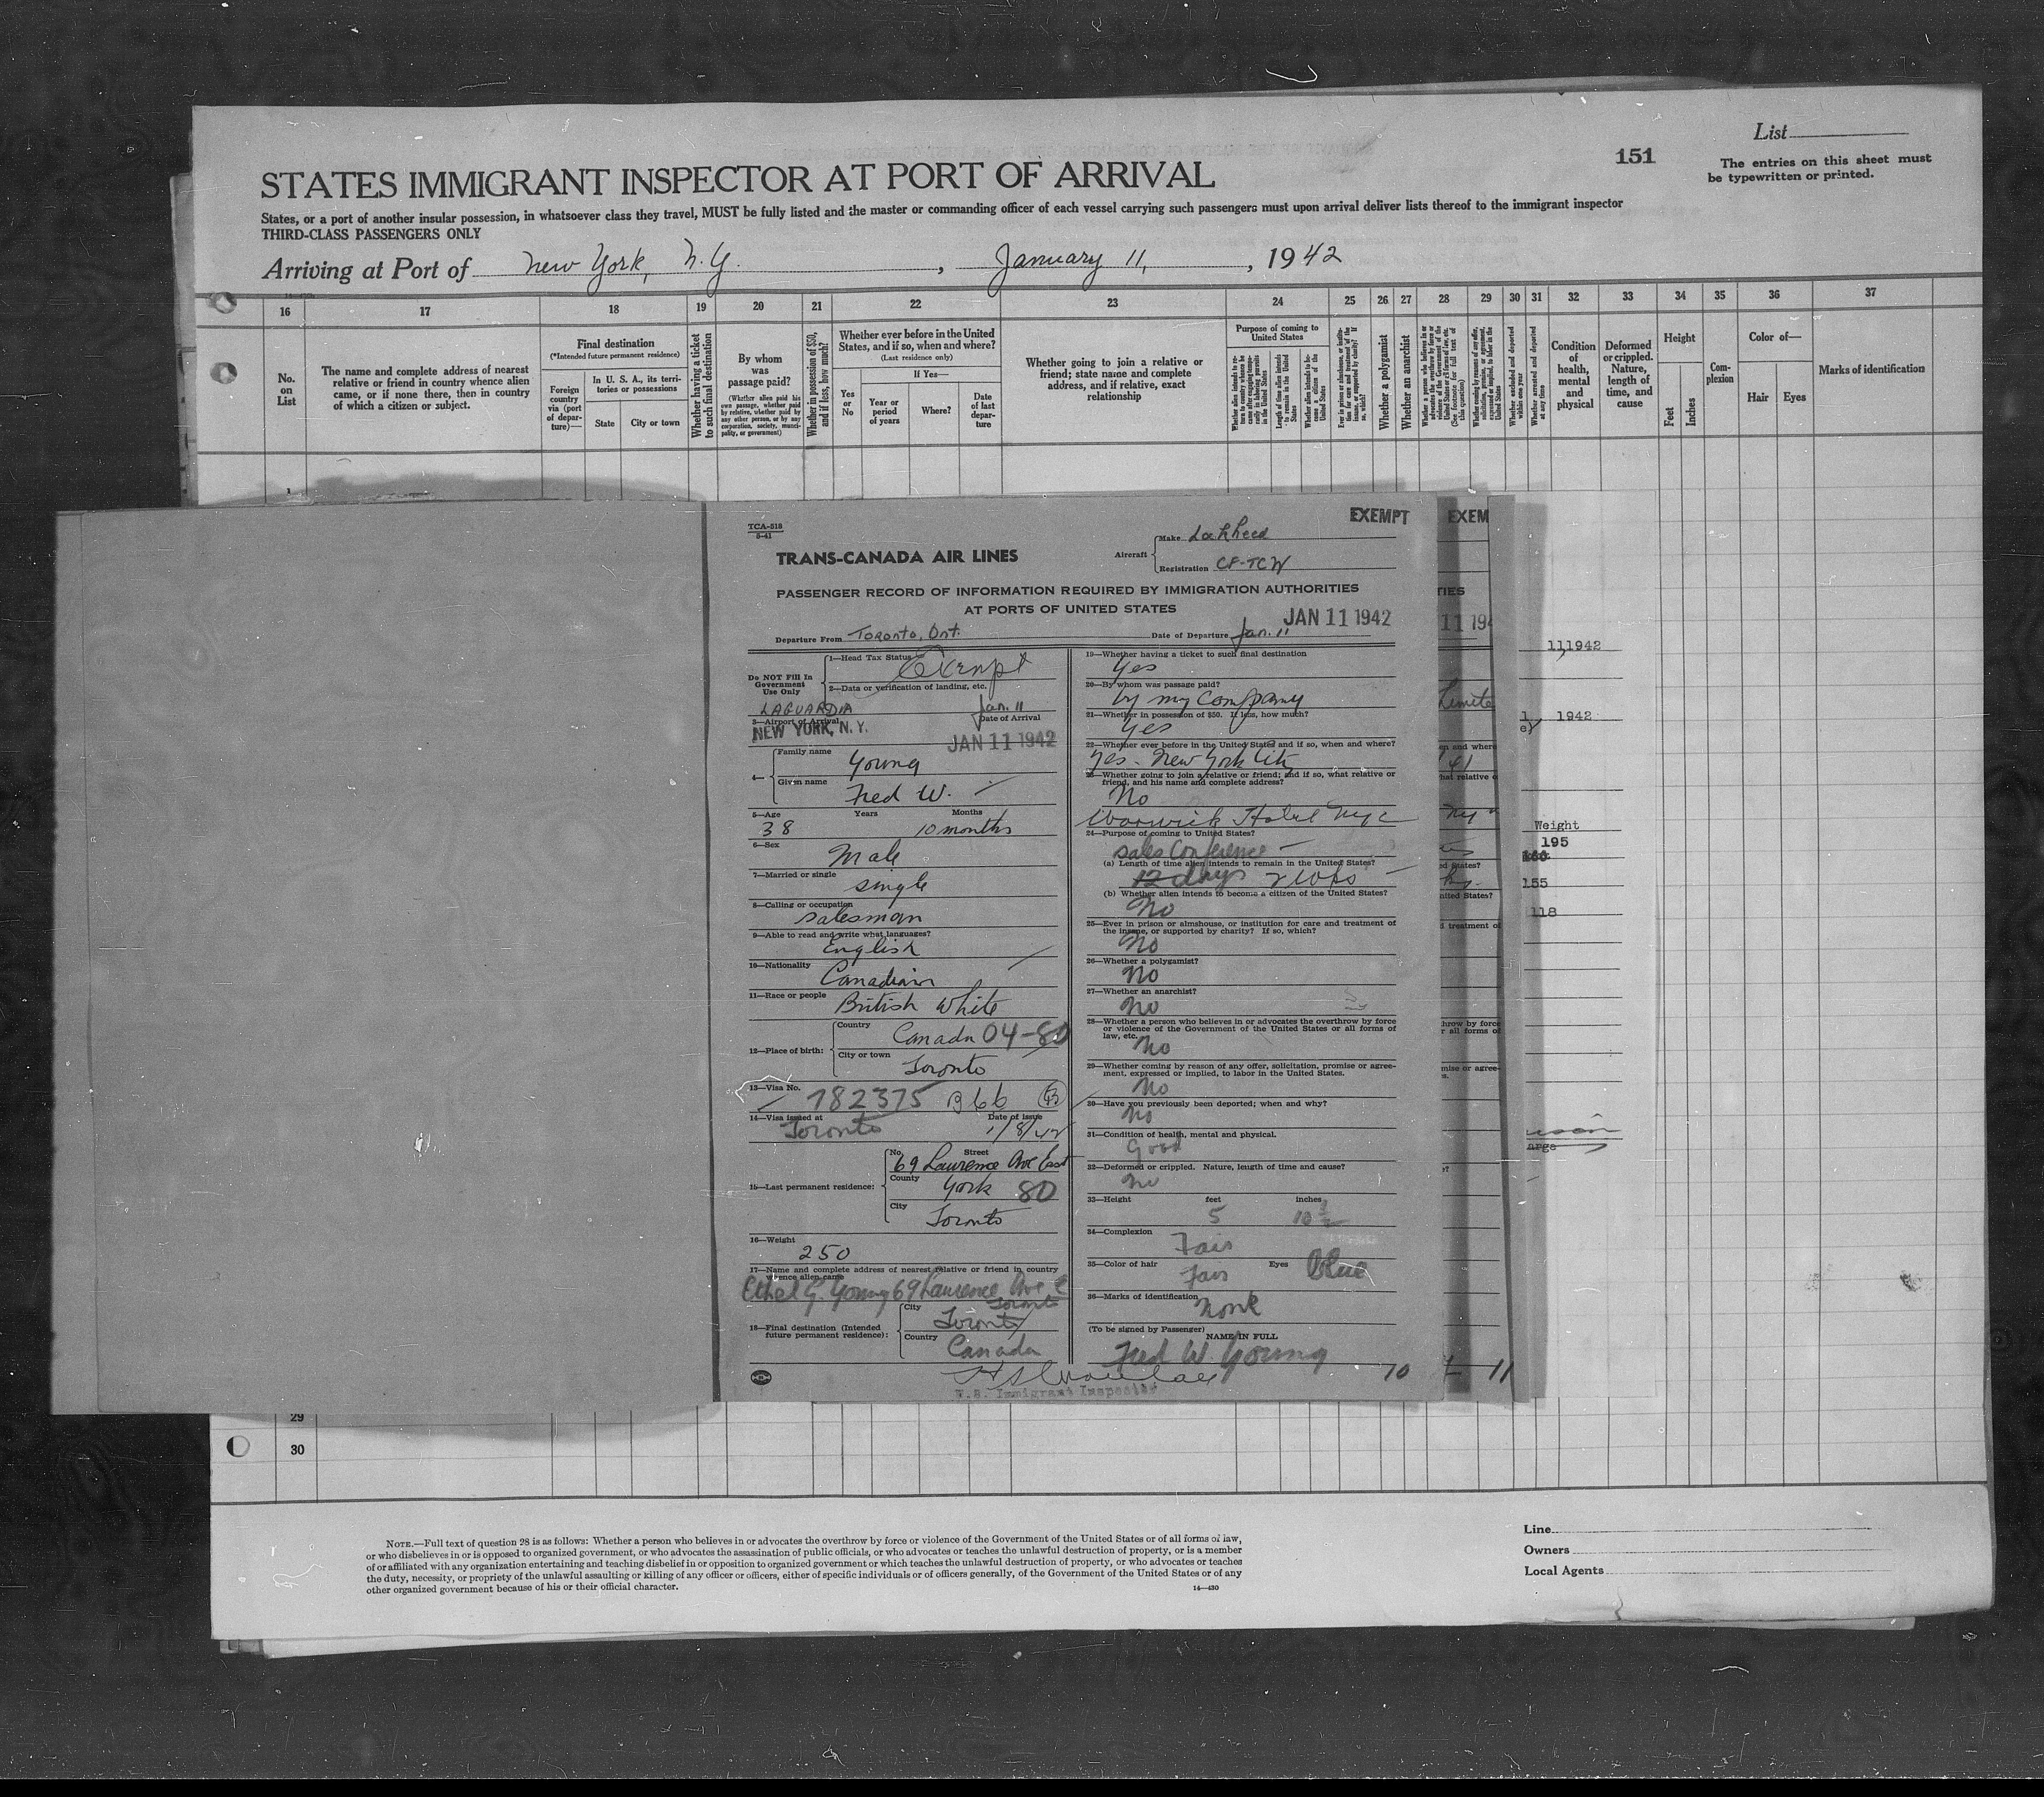 List
151
The entries on this sheet must
be typewritten or printed.
STATES IMMIGRANT INSPECTOR AT PORT OF ARRIVAL
States, or a port of another insular possession, in whatsoever class they travel, MUST be fully listed and the master or commanding officer of each vessel carrying such passengers must upon arrival deliver lists thereof to the immigrant inspector
THIRD-CLASS PASSENGERS ONLY
Arriving at Port of New York, N.Y. , January 11, , 1942
16 17 18 19 20 21 22 23 24 25 26 27 28 29 30 31 32 33 34 35 36 37
No.
on
List
The name and complete address of nearest
relative or friend in country whence alien
came, or if none there, then in country
of which a citizen or subject.
Final destination
(*Intended future permanent residence)
Foreign
country
via (port
of depar-
ture)—
In U. S. A., its terri-
tories or possessions
State
City or town
Whether having a ticket
to such final destination
By whom
was
passage paid?
(Whether alien paid his
own passage, whether paid
by relative, whether paid by
any other person, or by any
corporation, society, munici-
pality, or government)
Whether in possession of $50,
and if less, how much?
Whether ever before in the United
States, and if so, when and where?
(Last residence only)
If Yes—
Yes
or
No
Year or
period
of years
Where?
Date
of last
depar-
ture
Whether going to join a relative or
friend; state name and complete
address, and if relative, exact
relationship
Purpose of coming to
United States
Whether a polygamist
Whether an anarchist
Condition
of
health,
mental
and
physical
Deformed
or crippled.
Nature,
length of
time, and
cause
Height
Feet
Inches
Com-
plexion
Color of—
Hair
Eyes
Marks of identification
1
TCA-518
9-41
EXEMPT
TRANS-CANADA AIR LINES
Aircraft
Make Lockheed
Registration CF-TCW
PASSENGER RECORD OF INFORMATION REQUIRED BY IMMIGRATION AUTHORITIES
AT PORTS OF UNITED STATES
JAN 11 1942
Departure From Toronto, Ont.
Date of Departure Jan. 11
Do NOT Fill In
Government
Use Only
1—Head Tax Status Exempt
2—Data or verification of landing, etc.
LAGUARDIA Jan. 11
3—Airport of Arrival Date of Arrival
NEW YORK, N. Y. JAN 11 1942
4—
Family name Young
Given name Fred W.
5—Age Years Months
38 10 months
6—Sex
Male
7—Married or single
single
8—Calling or occupation
salesman
9—Able to read and write what languages?
English
10—Nationality
Canadian
11—Race or people
British White
12—Place of birth:
Country
Canada 04-80
City or town
Toronto
13—Visa No.
782375 B66
14—Visa issued at Date of issue
Toronto 1/8/42
15—Last permanent residence:
No. Street
69 Lawrence Ave East
County
York 80
City
Toronto
16—Weight
250
17—Name and complete address of nearest relative or friend in country
whence alien came
Ethel G. Young 69 Lawrence Ave E
Toronto
18—Final destination (Intended
future permanent residence):
City
Toronto
Country
Canada
19—Whether having a ticket to such final destination
Yes
20—By whom was passage paid?
by my company
21—Whether in possession of $50. If less, how much?
Yes
22—Whether ever before in the United States and if so, when and where?
Yes - New York City
23—Whether going to join a relative or friend; and if so, what relative or
friend, and his name and complete address?
No
Warwick Hotel NYC
24—Purpose of coming to United States?
sales Conference
(a) Length of time alien intends to remain in the United States?
12 days 2 wks
(b) Whether alien intends to become a citizen of the United States?
No
25—Ever in prison or almshouse, or institution for care and treatment of
the insane, or supported by charity? If so, which?
No
26—Whether a polygamist?
No
27—Whether an anarchist?
No
28—Whether a person who believes in or advocates the overthrow by force
or violence of the Government of the United States or all forms of
law, etc.
No
29—Whether coming by reason of any offer, solicitation, promise or agree-
ment, expressed or implied, to labor in the United States.
No
30—Have you previously been deported; when and why?
No
31—Condition of health, mental and physical.
Good
32—Deformed or crippled. Nature, length of time and cause?
No
33—Height feet inches
5 10 1/2
34—Complexion
Fair
35—Color of hair Eyes
Fair Blue
36—Marks of identification
None
(To be signed by Passenger)
NAME IN FULL
Fred W. Young
U.S. Immigrant Inspector
10
11
EXEM
TIES
11 194
Limite
en and where
41
hat relative o
ny
ed States?
nited States?
d treatment of
throw by force
r all forms of
mise or agree-
s.
111942
1942
Weight
195
160
155
118
arge
29
30
NOTE.—Full text of question 28 is as follows: Whether a person who believes in or advocates the overthrow by force or violence of the Government of the United States or of all forms of law,
or who disbelieves in or is opposed to organized government, or who advocates the assassination of public officials, or who advocates or teaches the unlawful destruction of property, or is a member
of or affiliated with any organization entertaining and teaching disbelief in or opposition to organized government or which teaches the unlawful destruction of property, or who advocates or teaches
the duty, necessity, or propriety of the unlawful assaulting or killing of any officer or officers, either of specific individuals or of officers generally, of the Government of the United States or of any
other organized government because of his or their official character.
14—430
Line
Owners
Local Agents